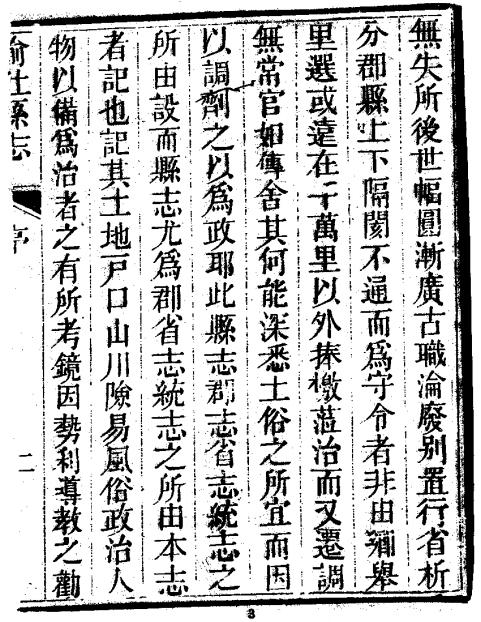 無失所後世幅圓漸廣古職淪廢别置行省析
分郡縣上下隔閡不通而爲守令者非由鄉舉
里選或遠在千萬里以外捧檄蒞治而又遷調
無常官如傳舍其何能深悉土俗之所宜而因
以調劑之以爲政耶此縣志郡志省志統志之
所由設而縣志尤爲郡省志統志之所由本志
者記也記其土地戸口山川險易風俗政治人
物以備爲治者之有所考鏡因勢利導教之勸
榆社縣志
序
二
3